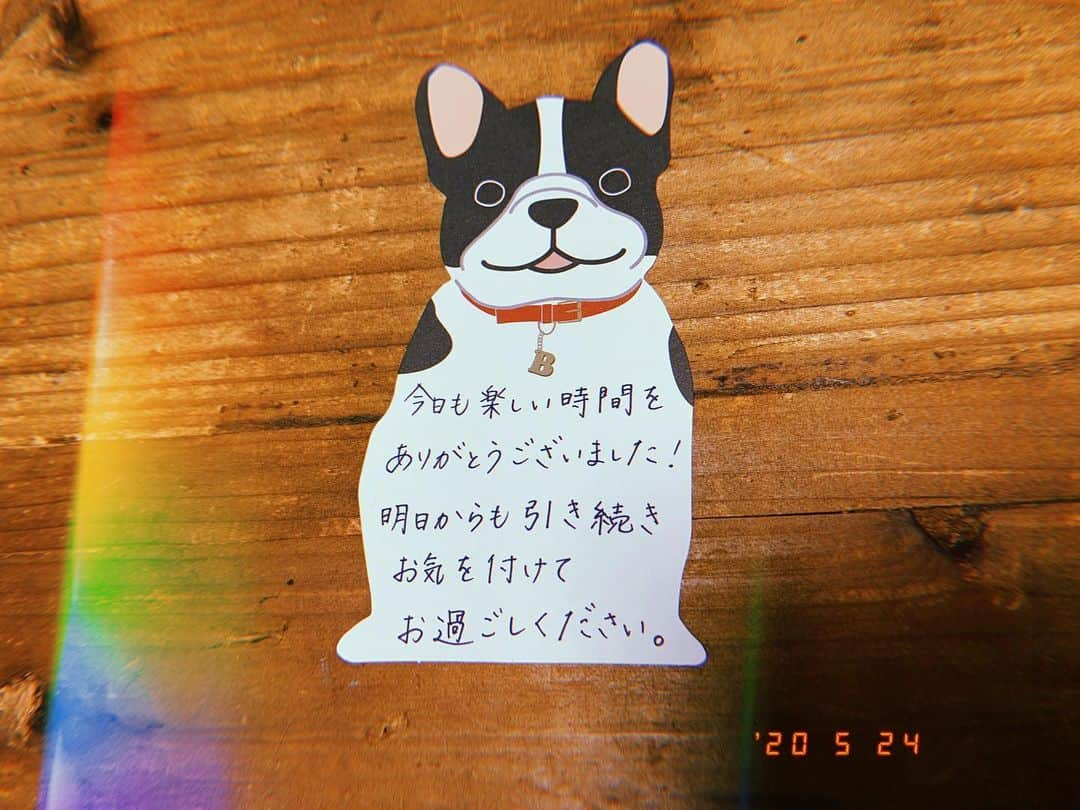 B
今日も楽しい時間を
ありがとうございました!
明日からも引き続き
お気を付けて
お過ごしください。
'20 5 24